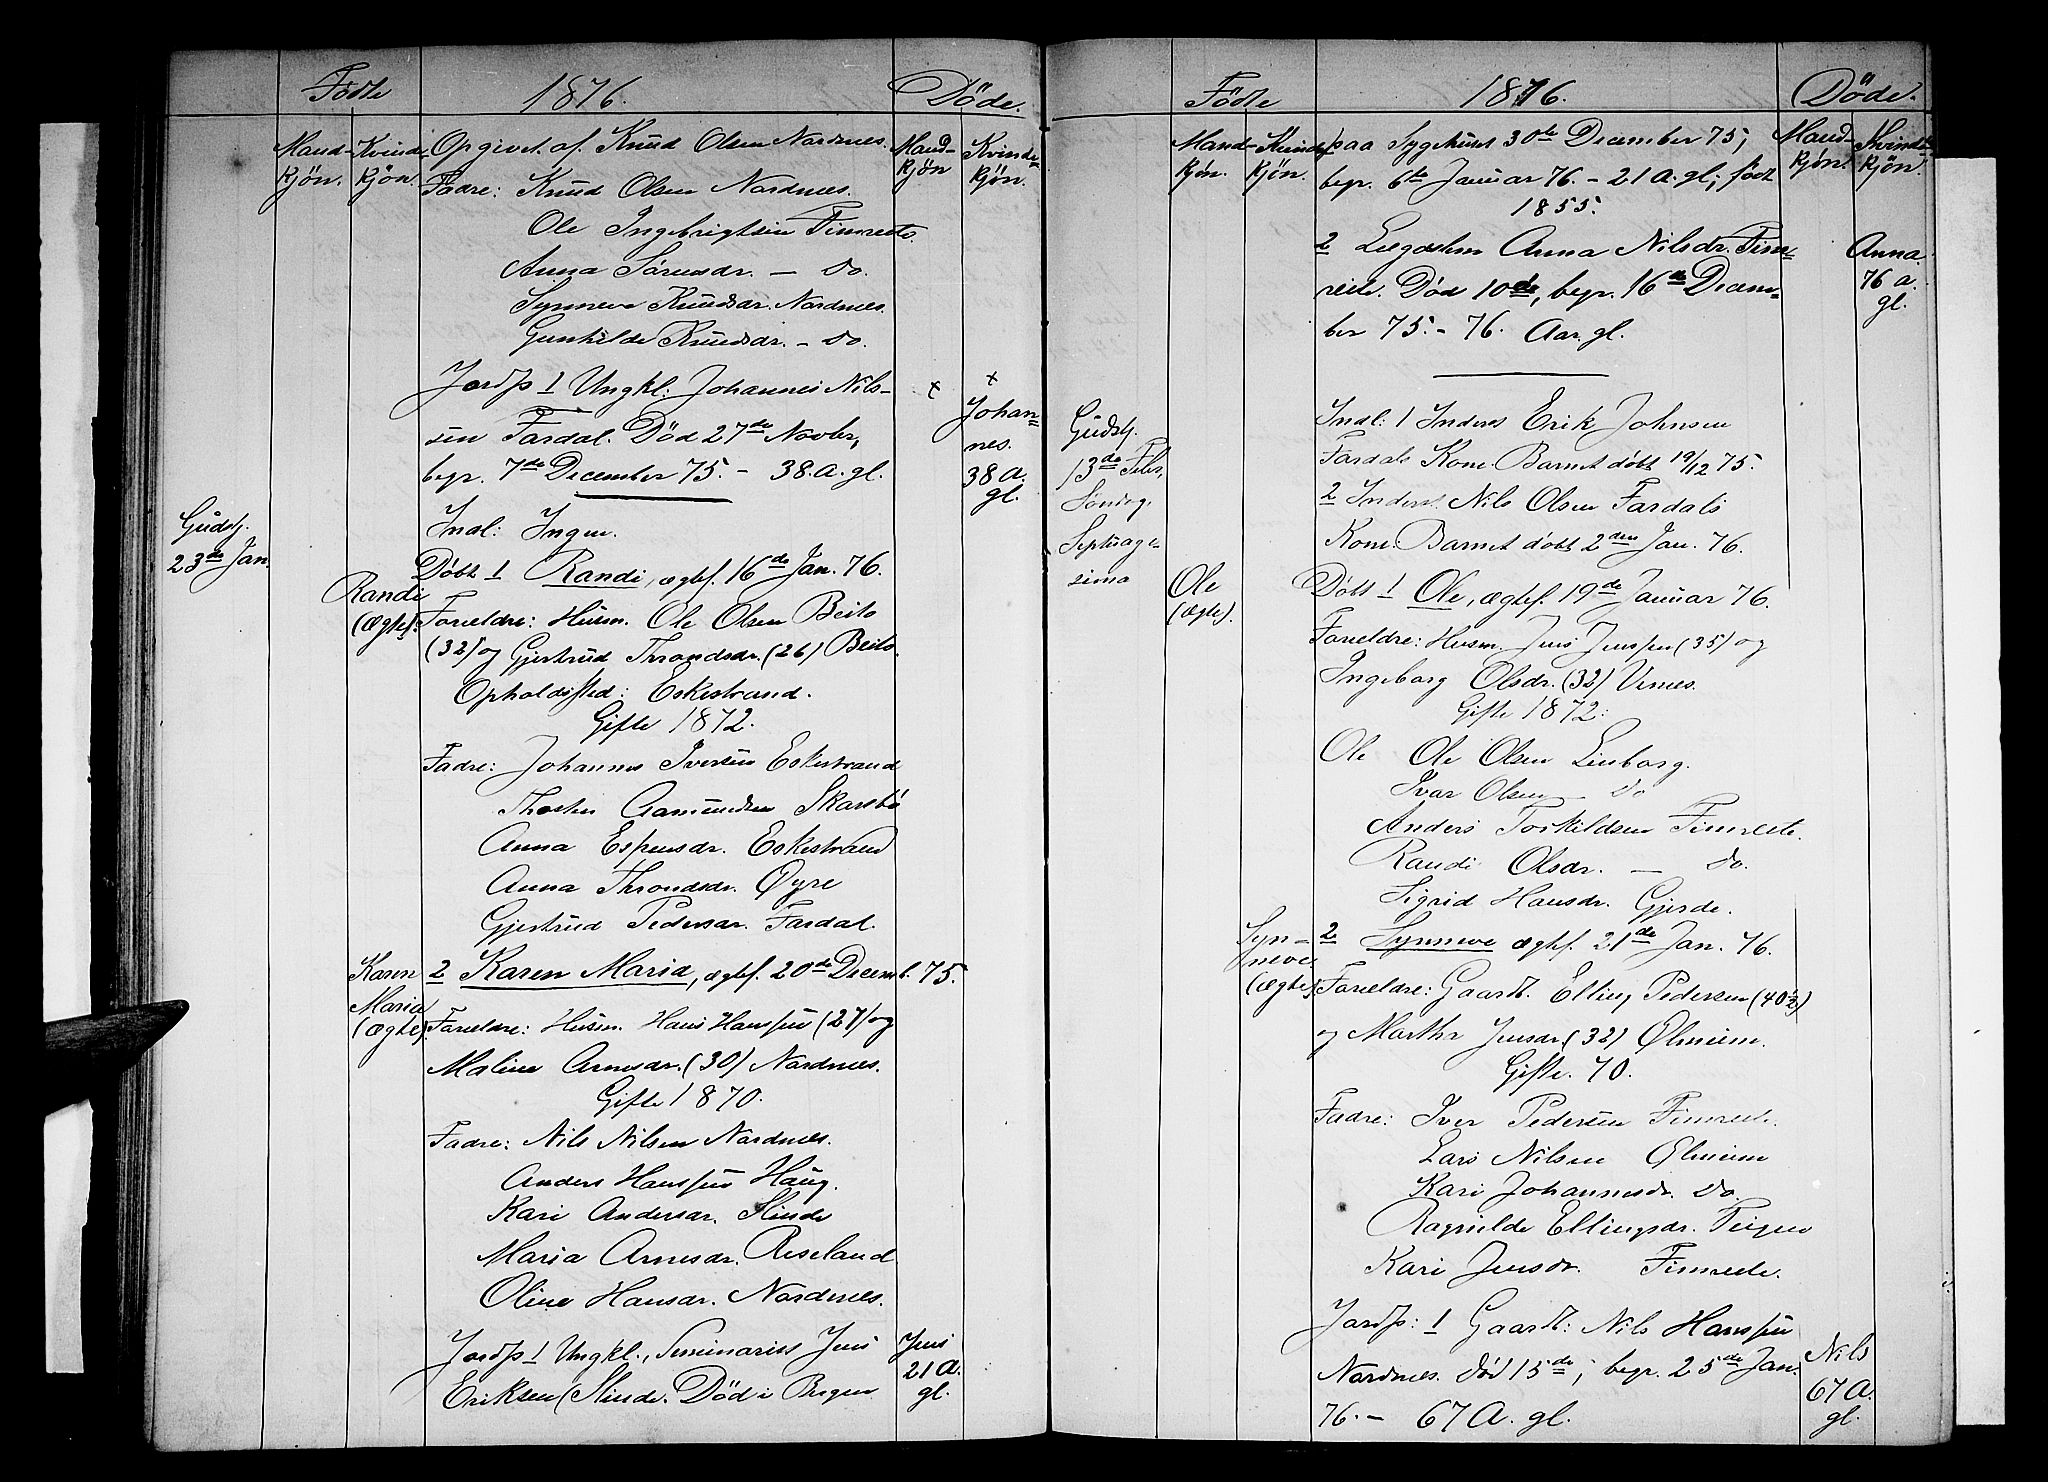 Födte
1876.
Døde.
Mand-
kjön.
Kvinde
kjön.
Mand-
kjön
Kvinde-
kjön.
Opgivet af Knud Olsen Nordnes.
Fadre: Knud Olsen Nordnes.
Ole Ingebrigtsen Fimreite.
Anna Sørensdr. — do.
Synneve Knudsdr. Nordnes.
Gunhilde Knudsdr. — do.
Jordf. 1 Ungkl. Johannes Nils-
sen Fardal. Död 27de Novbr.,
begr. 7de December 75. — 38. a. gl.
+
+
Johan-
nes.
38 a.
gl.
Gudstj.
23de Jan.
Indl: Ingen.
Døbt 1 Randi, ægtef. 16de Jan. 76.
Randi
(ægtef.)
Forældre: Husm. Ole Olsen Beito
(32) og Gjertrud Throndsdr. (26) Beito.
Opholdssted: Eskestrand.
Gifte 1872.
Fadre: Johannes Iversen Eskestrand
Thosten Aamundsen Skarsbö
Anna Espensdr. Eskestrand
Anna Throndsdr. Øyre
Gjertrud Pedersdr. Fardal.
Karen
Maria
(ægte).
2 Karen Maria, ægtef. 20de Decemb. 75.
Forældre: Husm. Hans Hanssen (27) og
Maline Arnesdr. (30) Nordnes.
Gifte 1870.
Fadre: Nils Nilsen Nordnes.
Anders Hanssen Haug.
Kari Andersdr. Slinde
Maria Arnesdr. Reseland
Oline Hansdr. Nordnes.
Jordf. 1 Ungkl., Seminarist Jens
Eriksen Slinde. Död i Bergen
Jens
21 A.
gl.
Födte
1876.
Døde.
Mand-
kjön.
Kvinde-
kjön.
Mand-
kjön.
Kvinde-
kjön.
paa Sygehuset 30te December 75,
begr. 6te Januar 76. — 21 A. gl; født
1855.
2 Lægdslem Anna Nilsdr. Fim-
reite. Död 10de, begr. 16de Decem-
ber 75. — 76. Aar. gl.
Anna.
76 a.
gl.
Gudstj.
13de Febr.,
Söndag
Septuage-
sima
Indl: 1 Inderst Erik Johnsen
Fardals Kone. Barnet døbt 19/12 75.
2 Inderst Nils Olsen Fardals
Kone. Barnet døbt 2den Jan. 76.
Ole
(ægte).
Døbt 1 Ole, ægtef. 19de Januar 76.
Forældre: Husm. Jens Jenssen (35) og
Ingeborg Olsdr. (32) Vines.
Gifte 1872:
Ole Ole Olsen Linborg.
Ivar Olsen — do
Anders Torkildsen Fimreite.
Randi Olsdr. — do.
Sigrid Hansdr. Gjerde.
Syn-
neve
(ægte)
2 Synneve ægtef. 21de Jan. 76.
Forældre: Gaardb. Elling Pedersen (40½)
og Martha Jensdr. (32) Ølmeim.
Gifte. 70.
Fadre: Iver Pedersen Fimreite.
Lars Nilsen Ølmeim
Kari Johannesdr. do.
Ragnilde Ellingsdr. Teigen
Kari Jensdr. Fimreite.
Jordf: 1 Gaardb: Nils Hanssen
Nordnes. död 15de; begr. 25de Jan.
76. — 67 A. gl.
Nils
67 A.
gl.